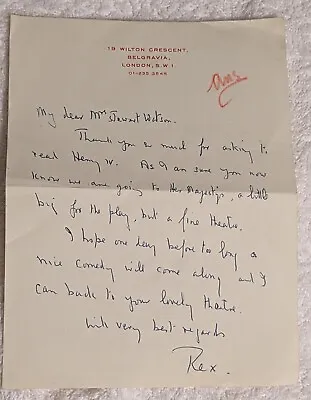 19 WILTON CRESCENT,
BELGRAVIA,
LONDON, S.W.1.
01-235 3845
ans
My dear Mrs Stewart Watson.
Thank you so much for asking to
read Henry IV. As I am sure you now
know we are going to Her Majesty's, a little
big for the play, but a fine theatre.
I hope one day before too long a
nice comedy will come along and I
can back to your lovely theatre.
With very best regards
Rex.